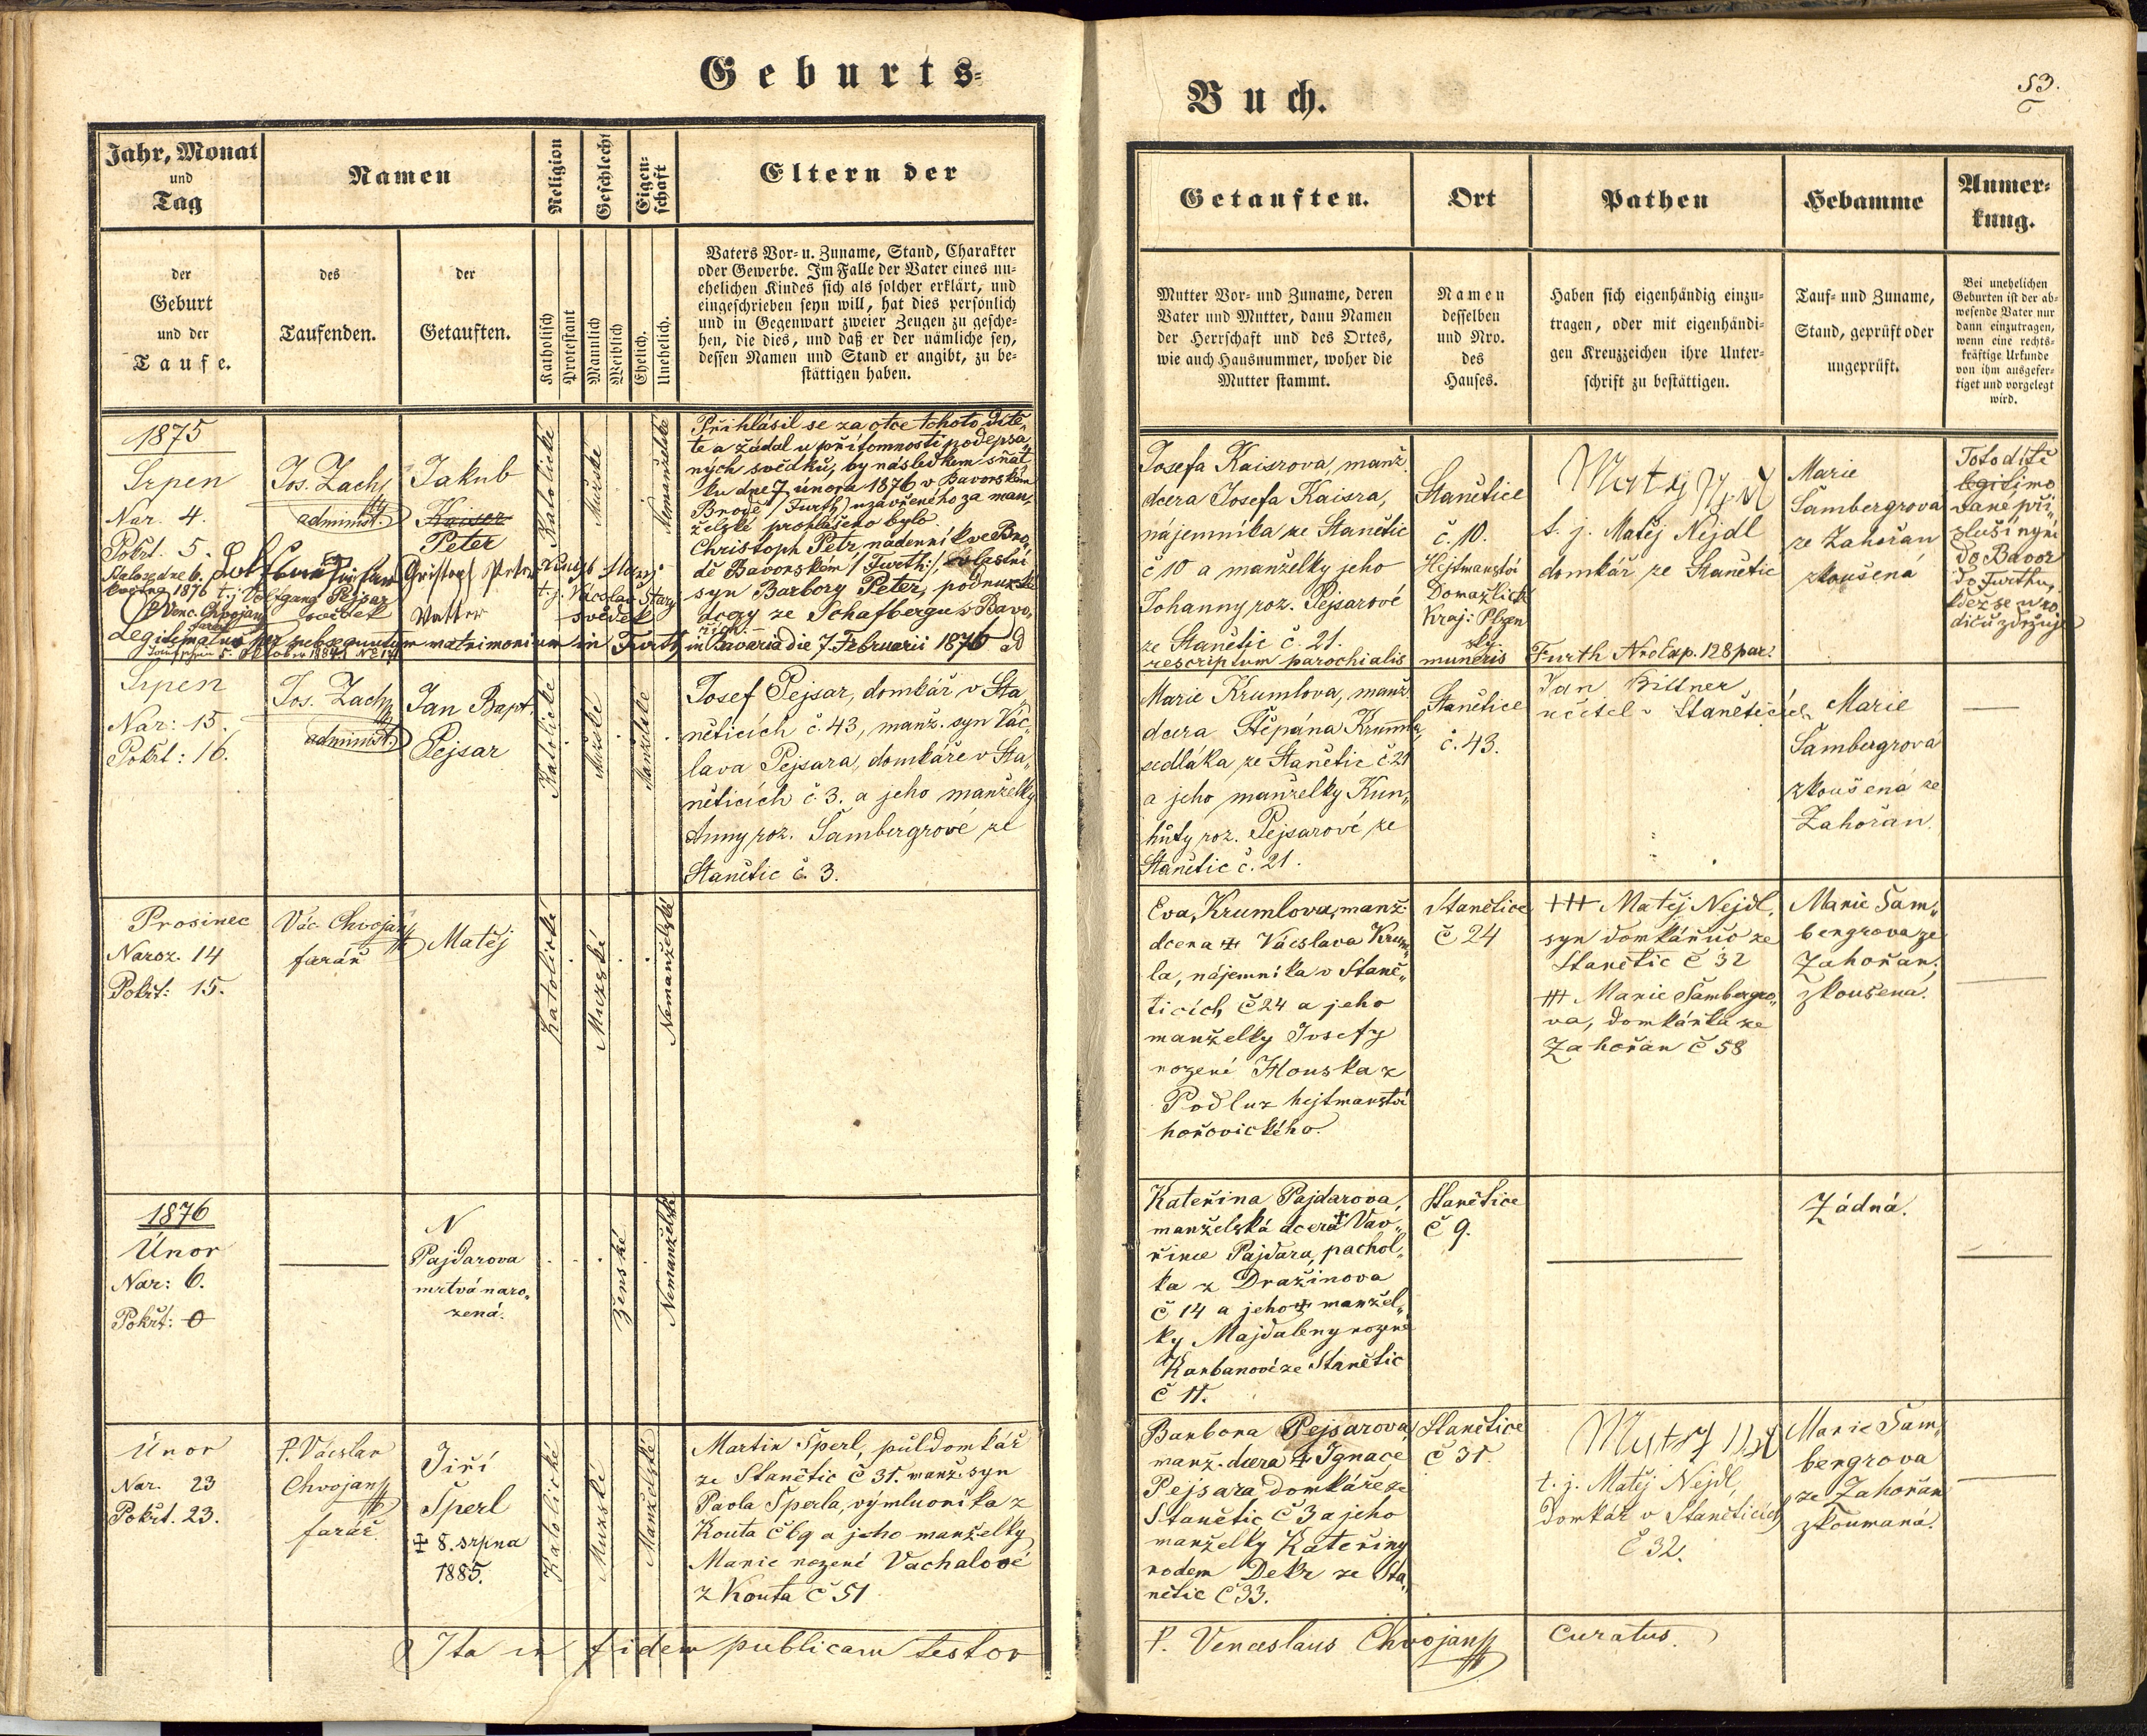 Geburts-
Buch.
53.
Jahr, Monat
und
Tag
Namen
Religion
Geschlecht
Eigen-
schaft
Eltern der
Getauften.
Ort
Pathen
Hebamme
Anmer-
kung.
der
Geburt
und der
Taufe.
des
Taufenden.
der
Getauften.
Katholisch
Protestant
Männlich
Weiblich
Ehelich.
Unehelich.
Vaters Vor- u. Zuname, Stand, Charakter
oder Gewerbe. Im Falle der Vater eines un-
ehelichen Kindes sich als solcher erklärt, und
eingeschrieben seyn will, hat dies persönlich
und in Gegenwart zweier Zeugen zu gesche-
hen, die dies, und daß er der nämliche sey,
dessen Namen und Stand er angibt, zu be-
stättigen haben.
Mutter Vor- und Zuname, deren
Vater und Mutter, dann Namen
der Herrschaft und des Ortes,
wie auch Hausnummer, woher die
Mutter stammt.
Namen
desselben
und Nro.
des
Hauses.
Haben sich eigenhändig einzu-
tragen, oder mit eigenhändi-
gen Kreuzzeichen ihre Unter-
schrift zu bestättigen.
Tauf- und Zuname,
Stand, geprüft oder
ungeprüft.
Bei unehelichen
Geburten ist der ab-
wesende Vater nur
dann einzutragen,
wenn eine rechts-
kräftige Urkunde
von ihm ausgefer-
tiget und vorgelegt
wird.
1875
Srpen
Nar. 4.
Pokřt. 5.
Stalo se dne 6.
května 1876 t.j. Wolfgang Pejsar
P. Venc. Chvojan svědek
farář
Jos. Zach
administ.
Jakub
Kaiser
Peter
Christoph Peter
Vatter
t. j. Vácslav Starý
svědek
Katolické
Mužské
Nemanželské
Přihlásil se za otce tohoto dítě„
te a žádal u přítomnosti podepsa„
ných svědků, by následkem sňat„
ku dne 7 února 1876 v Bavorském
Brodě /Furth/ uzavřeného za man„
želské prohlášeno bylo
Christoph Petr, nádenník ve Bro„
dě Bavorském /:Furth:/, vlastní
syn Barbory Peter, podruzké
dcery ze Schafbergu v Bavo„
řích.
Legitimatus per subsequentem matrimonium in Furth in Bavaria die 7 Februarii 1876 ad
rescriptum parochialis muneris Furth Nro Exp. 128 par.
Josefa Kaisrova, manž.
dcera Josefa Kaisra,
nájemníka ze Stanětic
č 10 a manželky jeho
Johanny roz. Pejsarové
ze Stanětic č. 21.
Stanětice
č. 10.
Hejtmanství
Domažlické
Kraj: Plzen
ský
t. j. Matěj Nejdl
domkář ze Stanětic
Marie
Šambergrova
ze Zahořan
zkoušená
Toto dítě
legitimo
vané při„
sluší nyní
do Bavor
do Furthu,
kdež se u ro
dičů zdržuje
Srpen
Nar: 15.
Pokřt: 16.
Jos. Zach
administ.
Jan Bapt.
Pejsar
Katolické
Mužské
Manželské
Josef Pejsar, domkář v Sta„
něticích č. 43, manž. syn Vác„
lava Pejsara, domkáře v Sta„
něticích č. 3. a jeho manželky
Anny roz. Šambergrové ze
Stanětic č. 3.
Marie Krumlova, manž.
dcera Štěpána Krumla,
sedláka ze Stanětic č. 21
a jeho manželky Kun„
hůty roz. Pejsarové ze
Stanětic č. 21.
Stanětice
č. 43.
Jan Bittner
učitel v Staněticích
Marie
Šambergrová
zkoušená ze
Zahořan.
Prosinec
Naroz. 14
Pokřt: 15.
Vác. Chvojan
farář
Matěj
Katolické
Mužské
Nemanželské
Eva, Krumlova, manž.
dcera ✝ Vácslava Krum„
la, nájemníka v Staně„
ticích č 24 a jeho
manželky Josefy
rozené Houska z
Podluz hejtmanství
hořovického.
Stanětice
č 24
+++ Matěj Nejdl,
syn domkářův ze
Stanětic č 32
+++ Marie Šambergro„
va, domkářka ze
Zahořan č 58
Marie Šam„
bergrova ze
Zahořan,
zkoušena.
1876
Únor
Nar: 6.
Pokřt: 0
N
Pajdarova
mrtvá naro„
zená.
Ženské
Nemanželské
Kateřina Pajdarova,
manželská dcera ✝ Vav„
řince Pajdara, pachol„
ka z Dražinova
č 14 a jeho ✝ manžel„
ky Majdaleny rozené
Karbanové ze Stanětic
č 11.
Stanětice
č 9.
Žádná.
Únor
Nar. 23
Pokřt. 23.
P. Vácslav
Chvojan
farář
Jiří
Šperl
✝ 8. srpna
1885.
Katolické
Mužské
Manželské
Martin Šperl, půldomkář
ze Stanětic č 31. manž. syn
Pavla Šperla, výmluvníka z
Kouta č 69 a jeho manželky
Marie rozené Vachalové
z Kouta č 51
Barbora Pejsarová,
manž. dcera ✝ Ignace
Pejsara domkáře ze
Stanětic č 3 a jeho
manželky Kateřiny
rodem Dekr ze Sta„
nětic č 33.
Stanětice
č 31.
t. j. Matěj Nejdl,
domkář v Staněticích
č 32.
Marie Šam„
bergrova
ze Zahořan
zkoumaná.
Ita in fidem publicam testor
P. Venceslaus Chvojan Curatus.